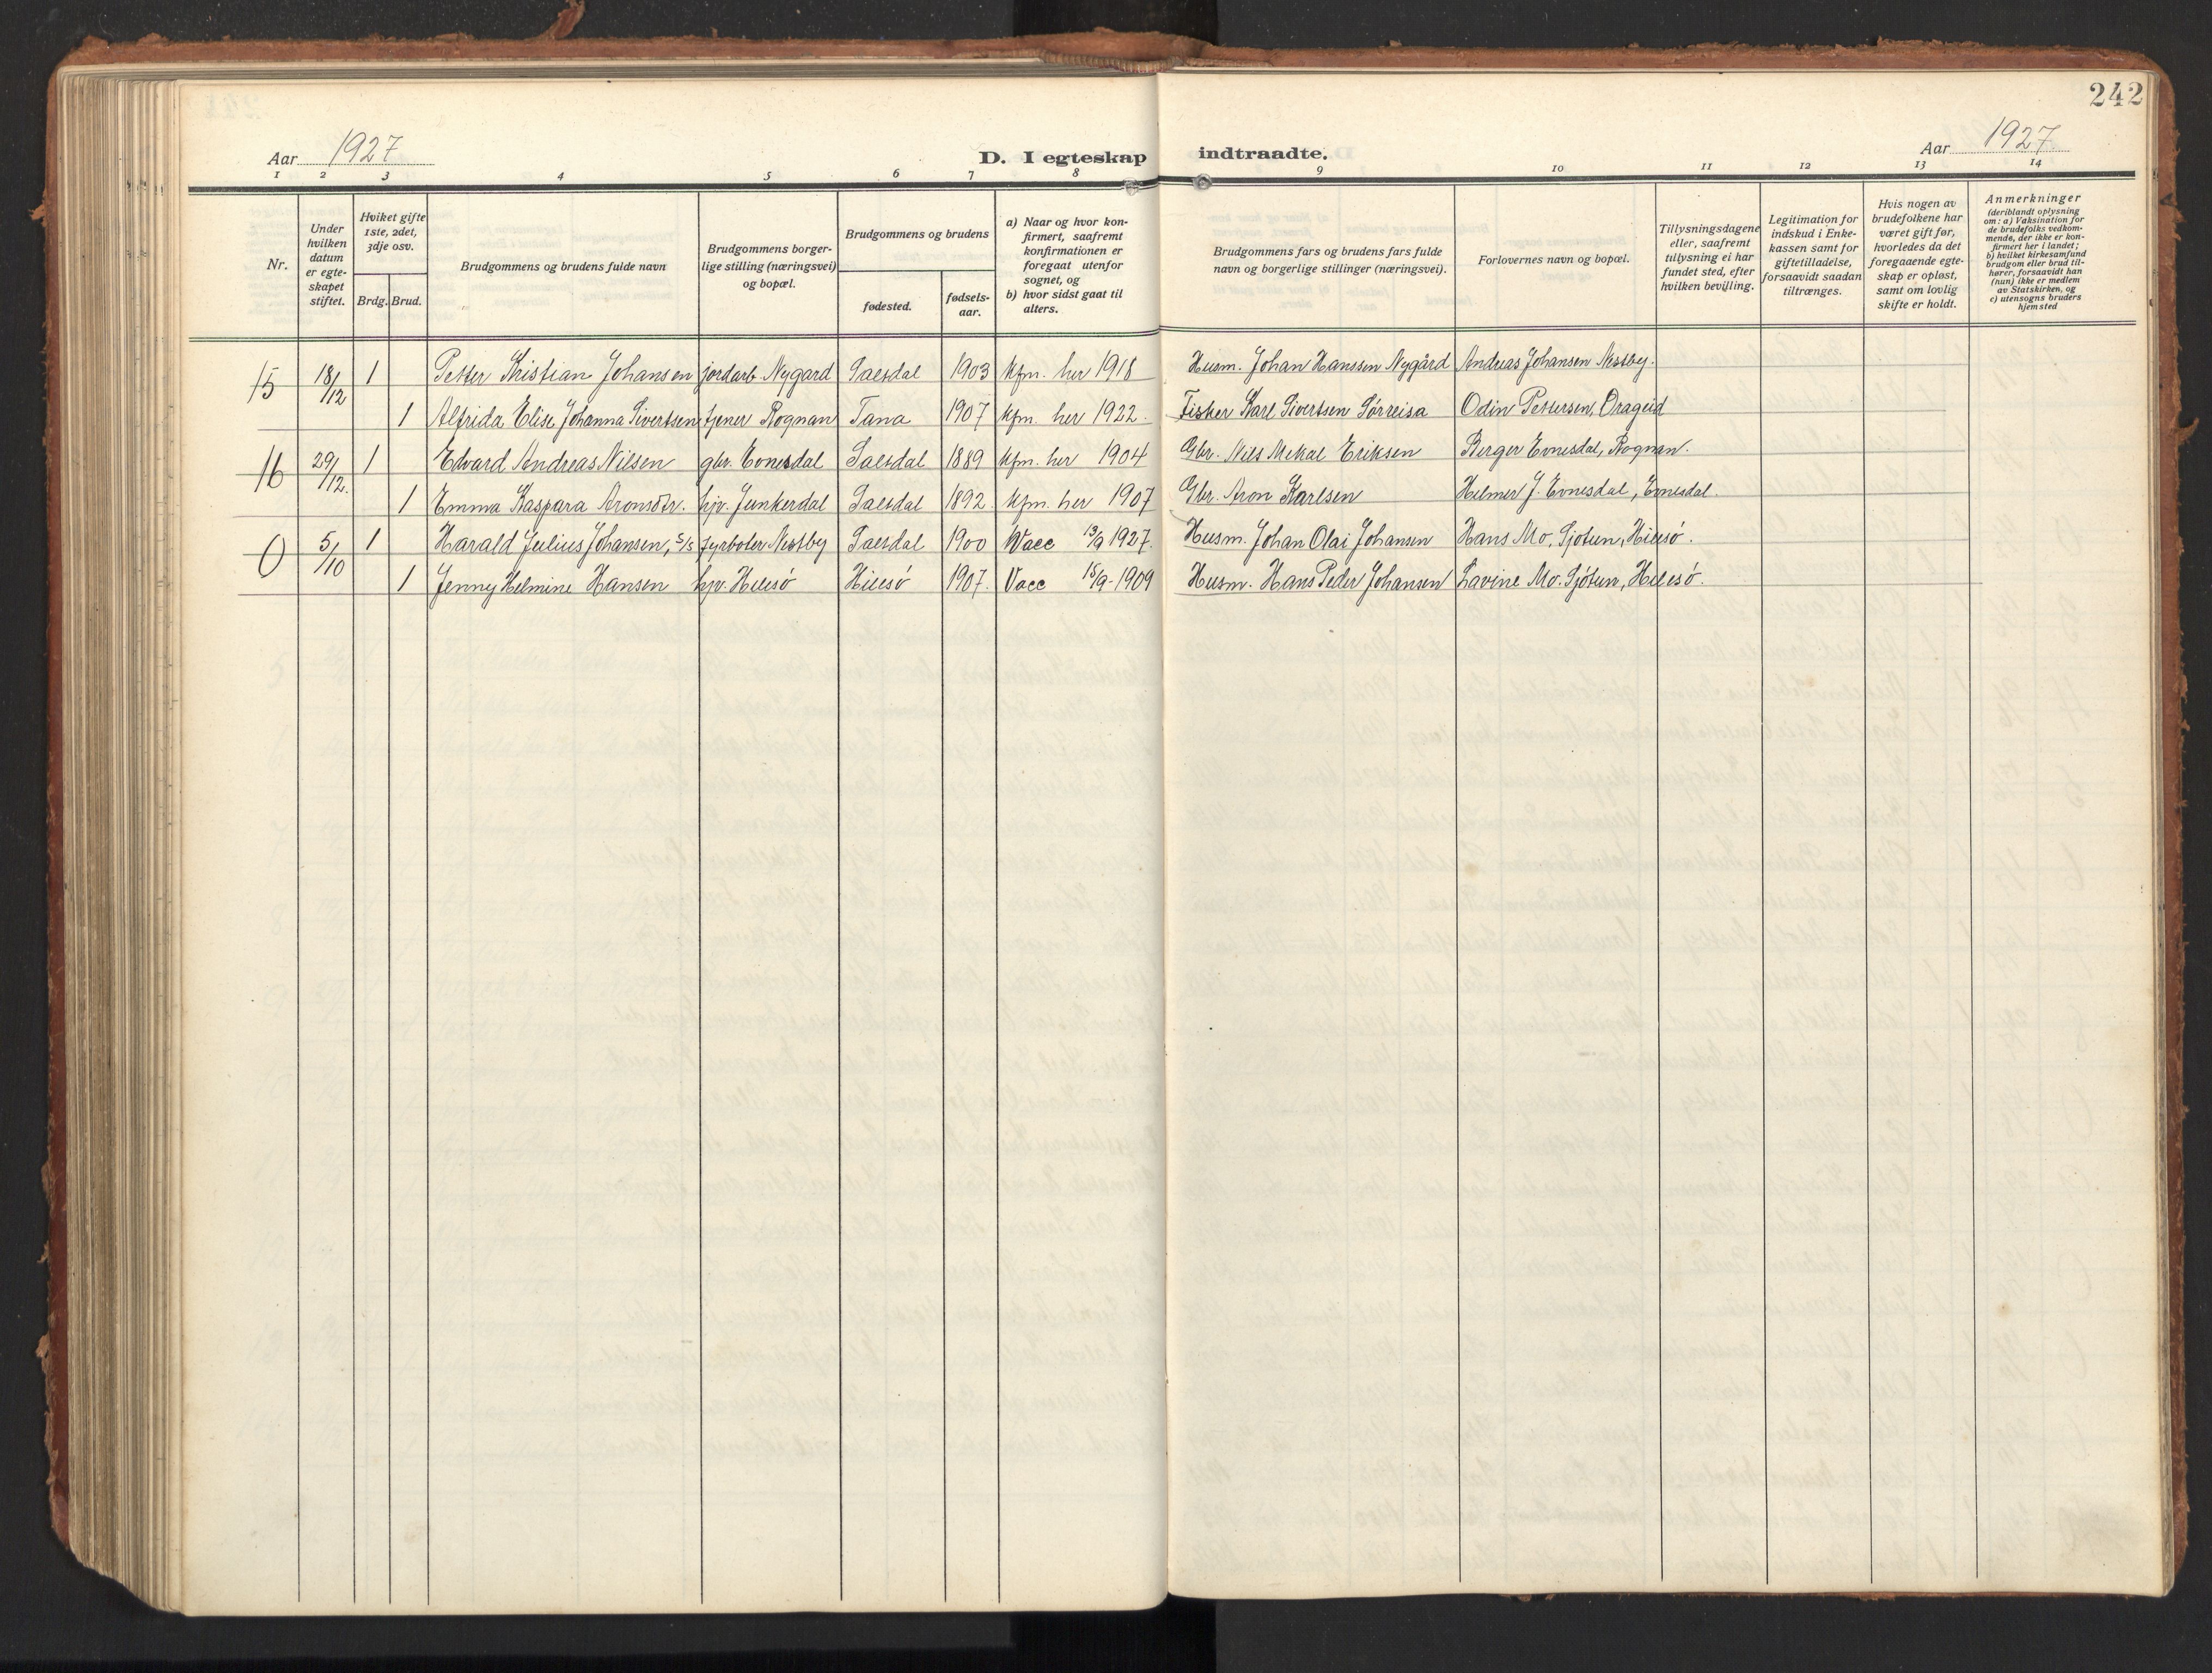 242
Aar 1927
D. I egteskap indtraadte.
Aar 1927
1 2 3 4 5 6 7 8 9 10 11 12 13 14
Nr.
Under hvilken datum er egteskapet stiftet.
Hviket gifte 1ste, 2det, 3dje osv.
Brdg. Brud.
Brudgommens og brudens fulde navn
Brudgommens borgerlige stilling (næringsvei) og bopæl.
Brudgommens og brudens
fødested.
fødselsaar.
a) Naar og hvor konfirmert, saafremt konfirmationen er foregaat utenfor sognet, og
b) hvor sidst gaat til alters.
Brudgommens fars og brudens fars fulde navn og borgerlige stillinger (næringsvei).
Forlovernes navn og bopæl.
Tillysningsdagene eller, saafremt tillysning ei har fundet sted, efter hvilken bevilling.
Legitimation for indskud i Enkekassen samt for giftetilladelse, forsaavidt saadan tiltrænges.
Hvis nogen av brudefolkene har været gift før, hvorledes da det foregaaende egteskap er opløst, samt om lovlig skifte er holdt.
Anmerkninger
(deriblandt oplysning om: a) Vaksination for de brudefolks vedkommende, der ikke er konfirmert her i landet; b) hvilket kirkesamfund brudgom eller brud tilhører, forsaavidt han (hun) ikke er medlem av Statskirken, og c) utensogns bruders hjemsted
15 18/12 1 Petter Kristian Johansen jordarb. Nygård Saltdal 1903 kfm. her 1918 Husm. Johan Hanssen Nygård Andreas Johansen Nestby.
1 Alfrida Elise Johanna Sivertsen tjener Rognan Tana 1907 kfm. her 1922. Fisker Karl Sivertsen Sørreisa Odin Pettersen, Drageid
16 29/12. 1 Edvard Andreas Nilsen gbr. Evnesdal Saltdal 1889 kfm. her 1904 Gbr. Nils Mekal Eriksen Birger Evnesdal, Rognan.
1 Emma Kaspara Aronsdtr. hp. Junkerdal Saltdal 1892. kfm. her 1907 Gbr. Aron Karlsen Helmer J. Evnesdal, Evnesdal.
0 5/10 1 Harald Julius Johansen, s/s fyrbøter Nestby Saltdal 1900 Vacc 13/9 1927. Husm. Johan Olai Johansen Hans Mo, Sjøtun, Hillesö.
1 Jenny Helmine Hansen hp. Hillesö Hillesö 1907. Vacc 18/9-1909 Husm. Hans Peder Johansen Lavine Mo. Sjötun, Hillesö.